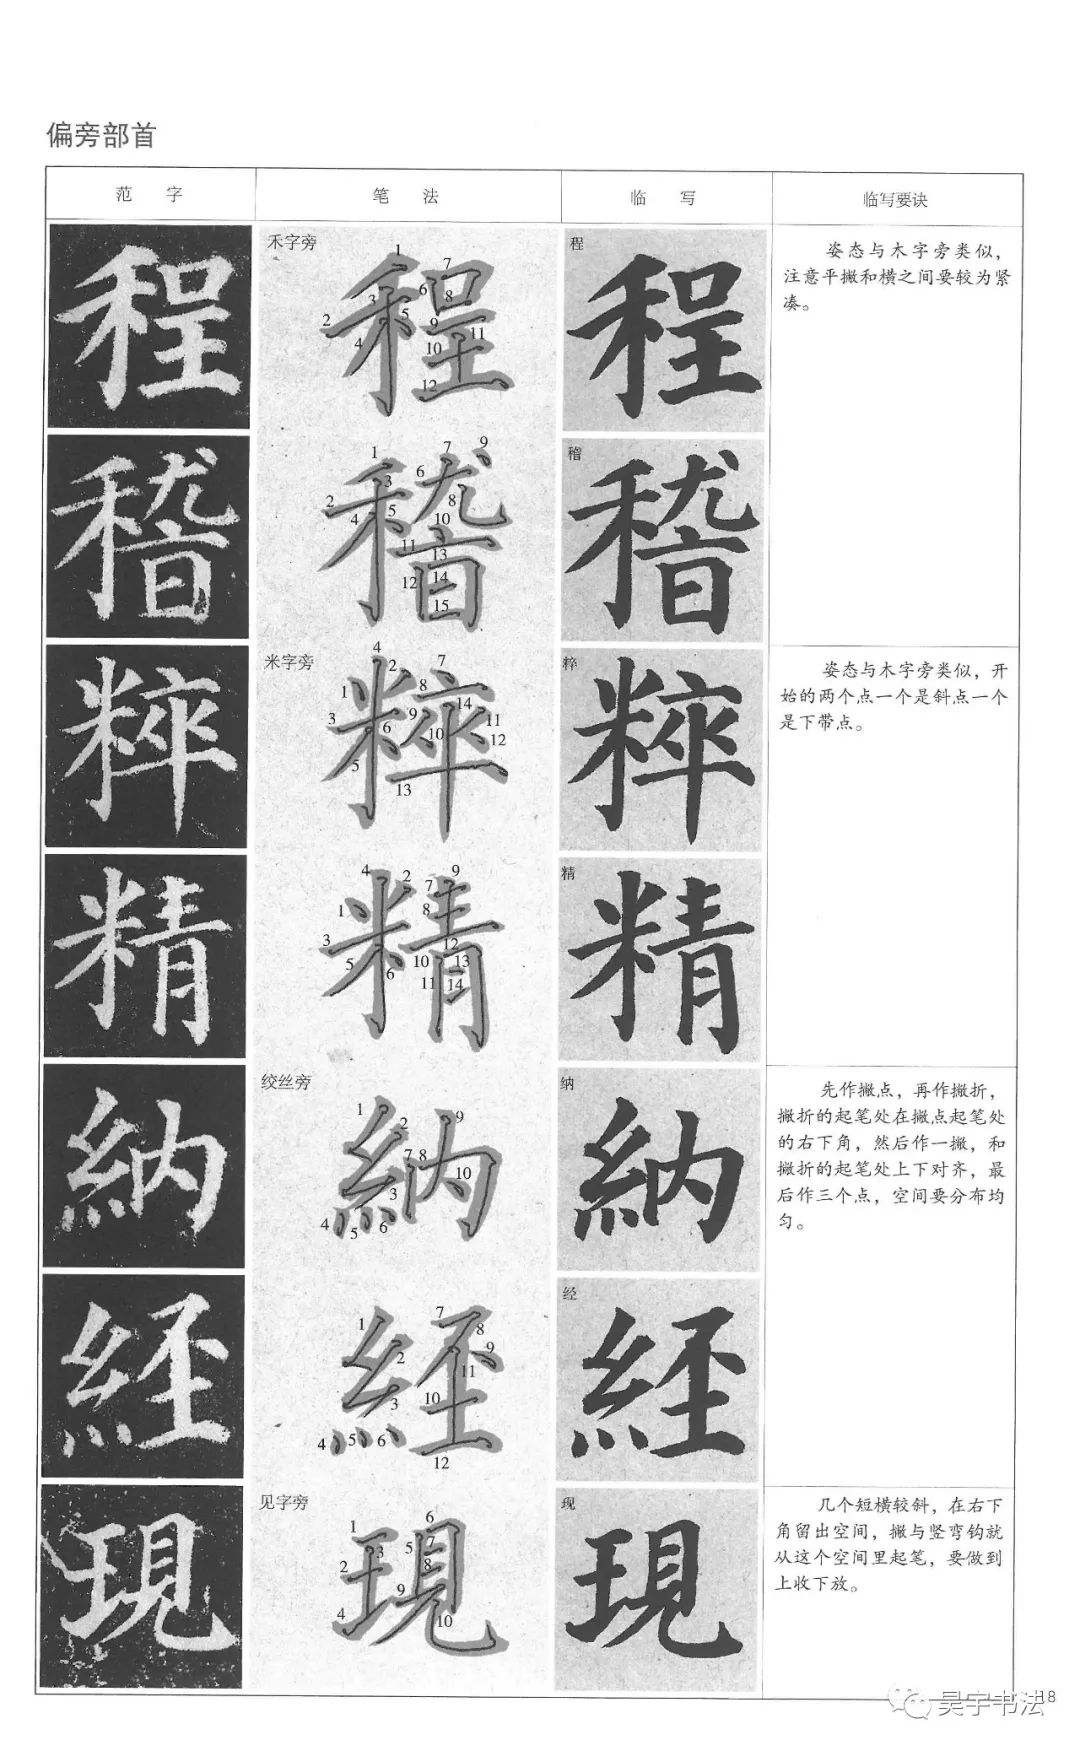 偏旁部首
范 字 笔 法 临 写 临写要诀
程 禾字旁 程 程 程
姿态与木字旁类似，
注意平撇和横之间要较为紧
凑。
1 2 3 4 5 6 7 8 9 10 11 12
稽 稽 稽 稽
1 2 3 4 5 6 7 8 9 10 11 12 13 14 15
粹 米字旁 粹 粹 粹
姿态与木字旁类似，开
始的两个点一个是斜点一个
是下带点。
1 2 3 4 5 6 7 8 9 10 11 12 13 14
精 精 精 精
1 2 3 4 5 6 7 8 9 10 11 12 13 14
納 绞丝旁 納 纳 納
先作撇点，再作撇折，
撇折的起笔处在撇点起笔处
的右下角，然后作一撇，和
撇折的起笔处上下对齐，最
后作三个点，空间要分布均
匀。
1 2 3 4 5 6 7 8 9 10
經 經 经 經
1 2 3 4 5 6 7 8 9 10 11 12
現 见字旁 現 现 現
几个短横较斜，在右下
角留出空间，撇与竖弯钩就
从这个空间里起笔，要做到
上收下放。
1 2 3 4 5 6 7 8 9 10
18
昊宇书法